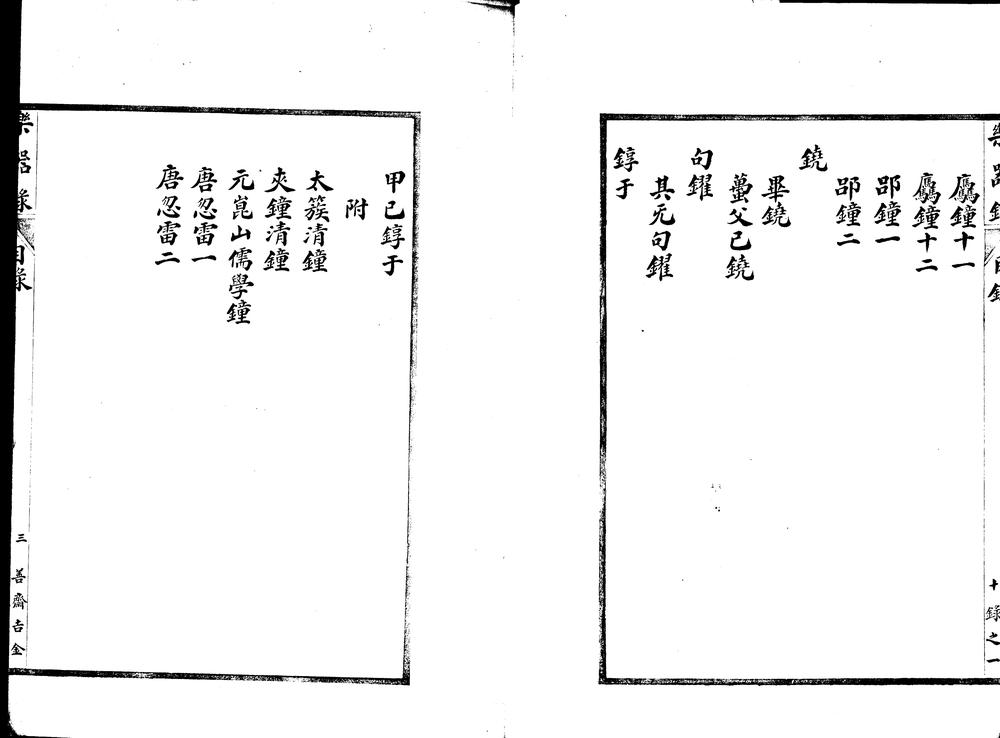 樂器錄 目錄 十錄之一
鐘十一
鐘十二
郘鐘一
郘鐘二
鐃
畢鐃
蠆父己鐃
句鑃
其旡句鑃
錞于
甲己錞于
附
太簇清鐘
夾鐘清鐘
元崑山儒學鐘
唐忽雷一
唐忽雷二
樂器錄 目錄 三 善齋吉金